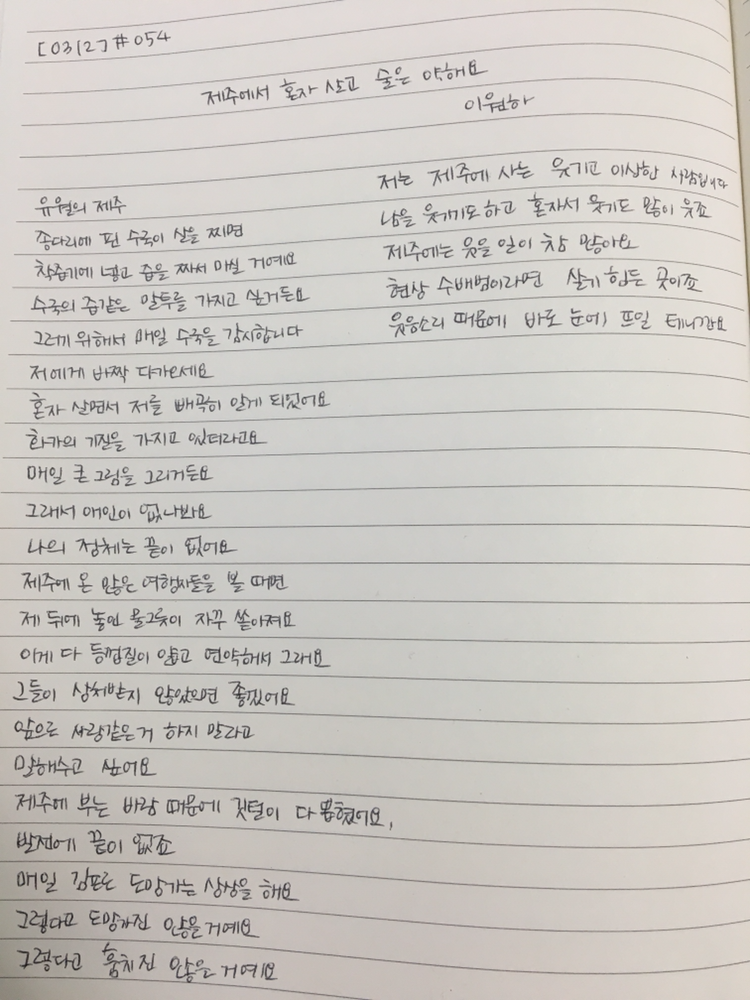 [0312] #054
제주에서 혼자 살고 술은 약해요
이원하
유월의 제주
종다리에 핀 수국이 살을 찌면
착즙기에 넣고 즙을 짜서 마실 거예요
수국의 즙같은 말투를 가지고 싶거든요
그러기 위해서 매일 수국을 감시합니다
저에게 바짝 다가오세요
혼자 살면서 저를 빼곡히 알게 되었어요
화가의 기질을 가지고 있더라고요
매일 큰 그림을 그리거든요
그래서 애인이 없나봐요
나의 정체는 끝이 없어요
제주에 온 많은 여행자들을 볼 때면
제 뒤에 놓인 물그릇이 자꾸 쏟아져요
이게 다 등껍질이 얇고 연약해서 그래요
그들이 상처받지 않았으면 좋겠어요
앞으로 사랑같은거 하지 말라고
말해주고 싶어요
제주에 부는 바람 때문에 깃털이 다 뽑혔어요,
발전에 끝이 없죠
매일 김포로 도망가는 상상을 해요
그렇다고 도망가진 않을거예요
그렇다고 훔치진 않을거예요
저는 제주에 사는 웃기고 이상한 사람입니다
남을 웃기기도 하고 혼자서 웃기도 많이 웃죠
제주에는 웃을 일이 참 많아요
현상 수배범이라면 살기 힘든 곳이죠
웃음소리 때문에 바로 눈에 뜨일 테니까요